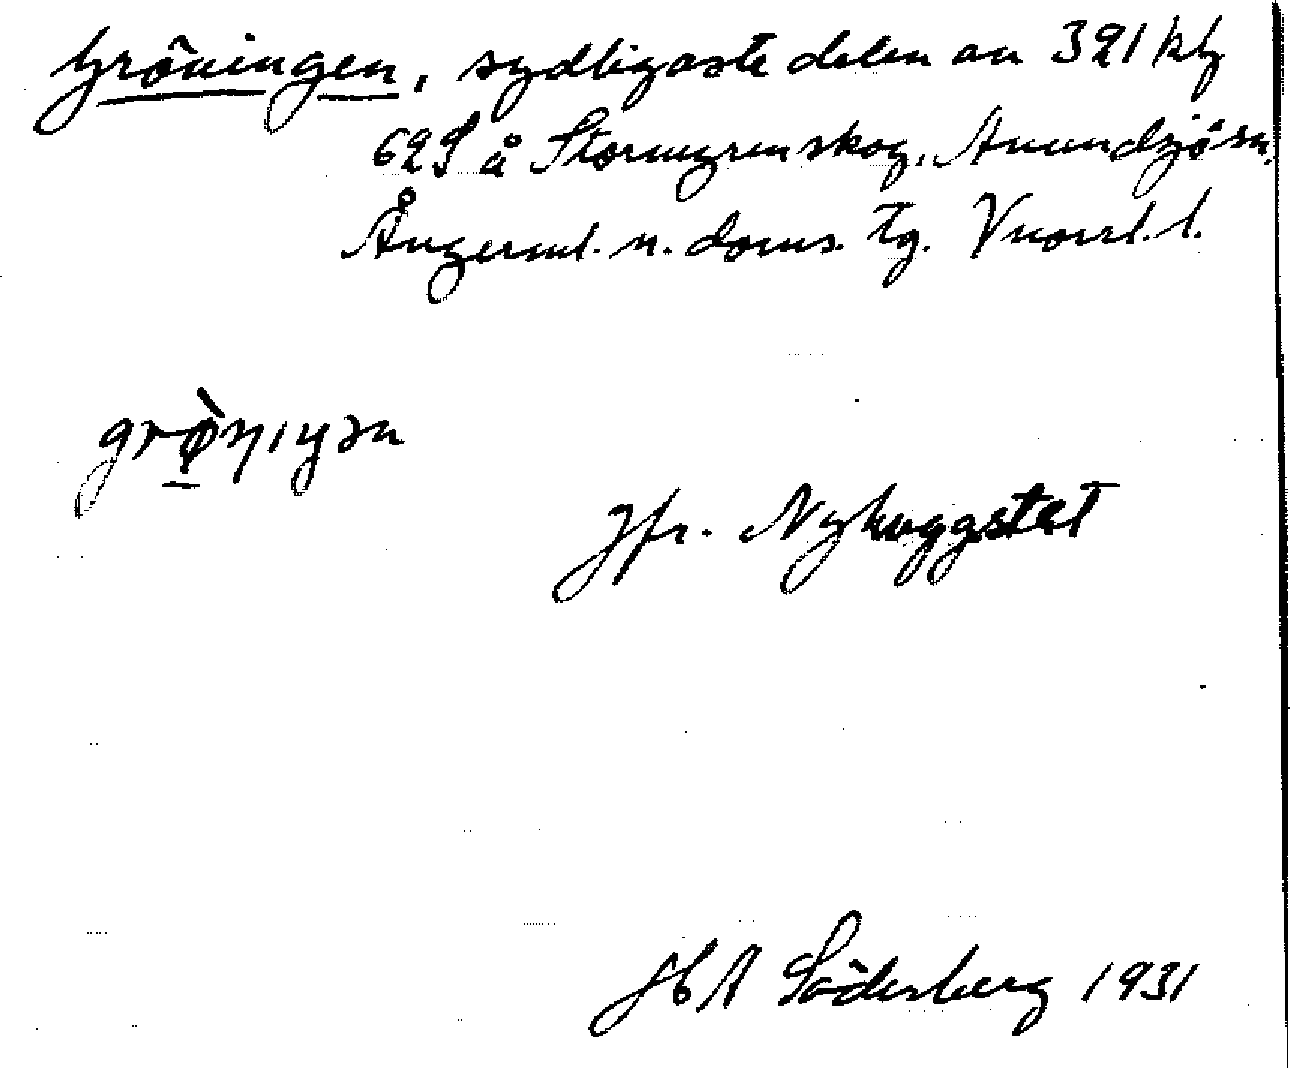 Gröningen, sydligaste delen av 391 kly
629 å Stormyrenskog, Anundsjö sn.
Ångerml. n. doms. tg. Vuorrl. l.
grø̀nıŋən
Jfr. Nyhuggstet
H A Söderberg 1931